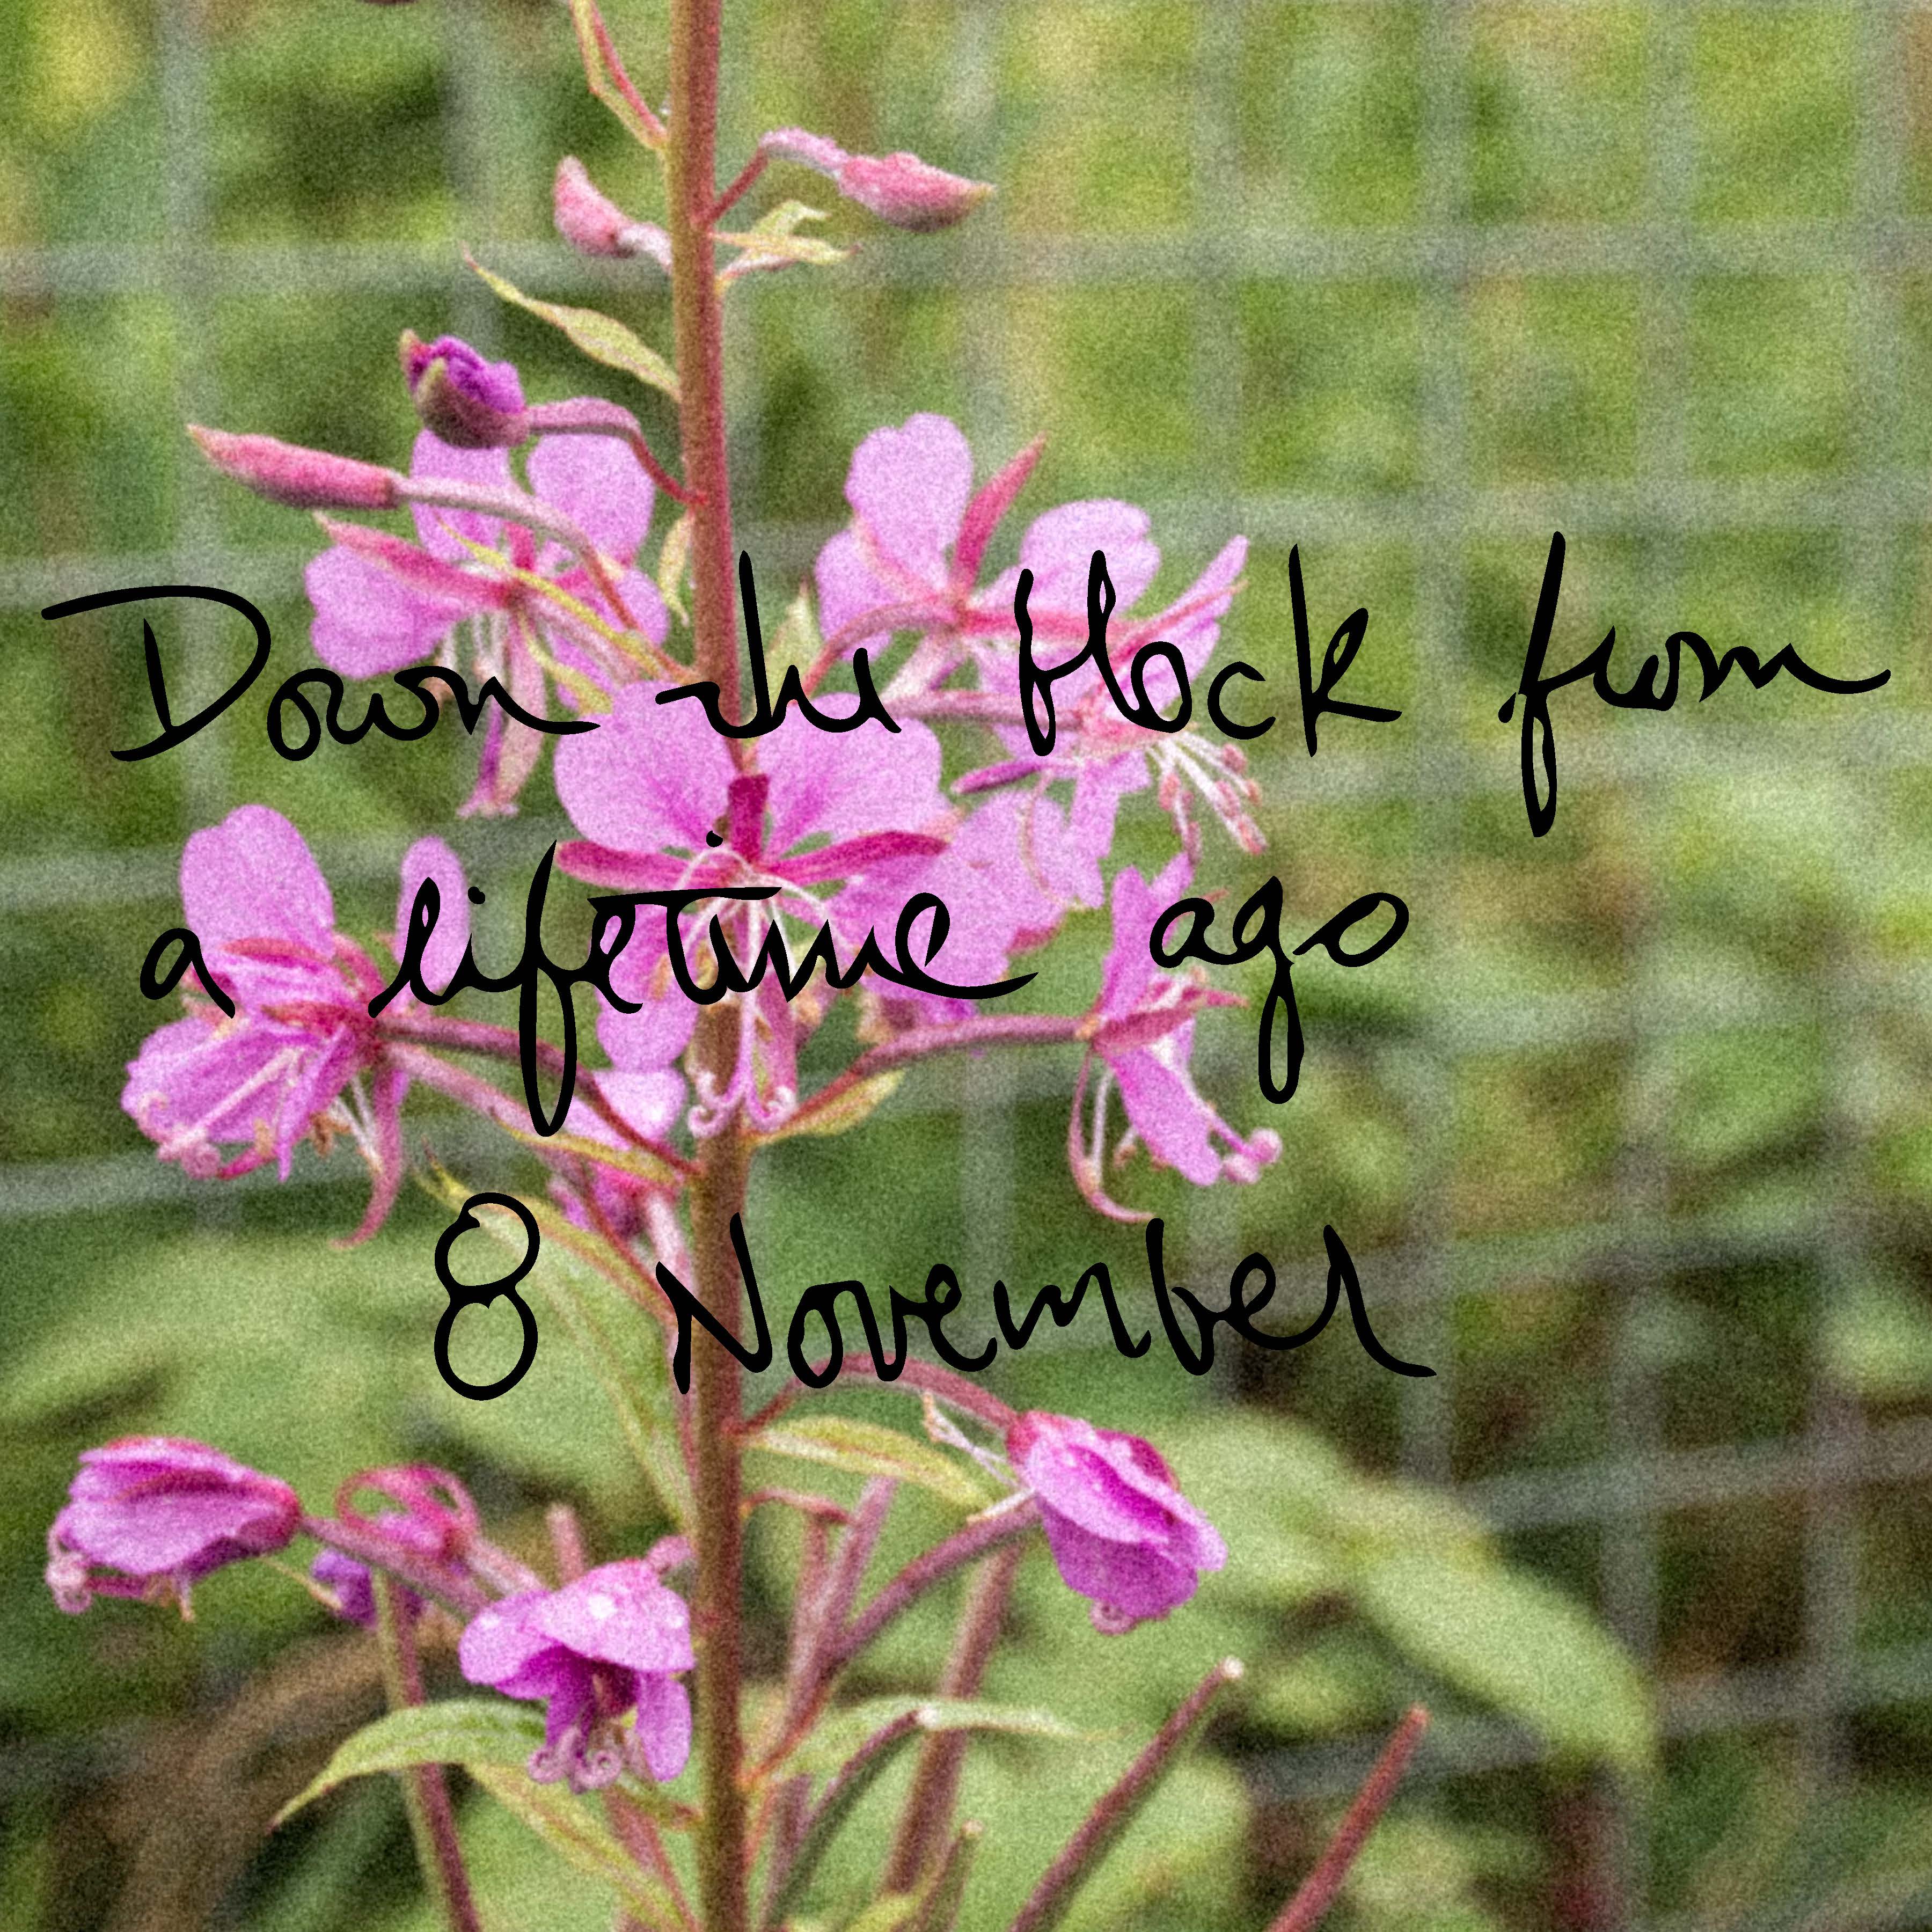 Down the block from
a lifetime ago
8 November